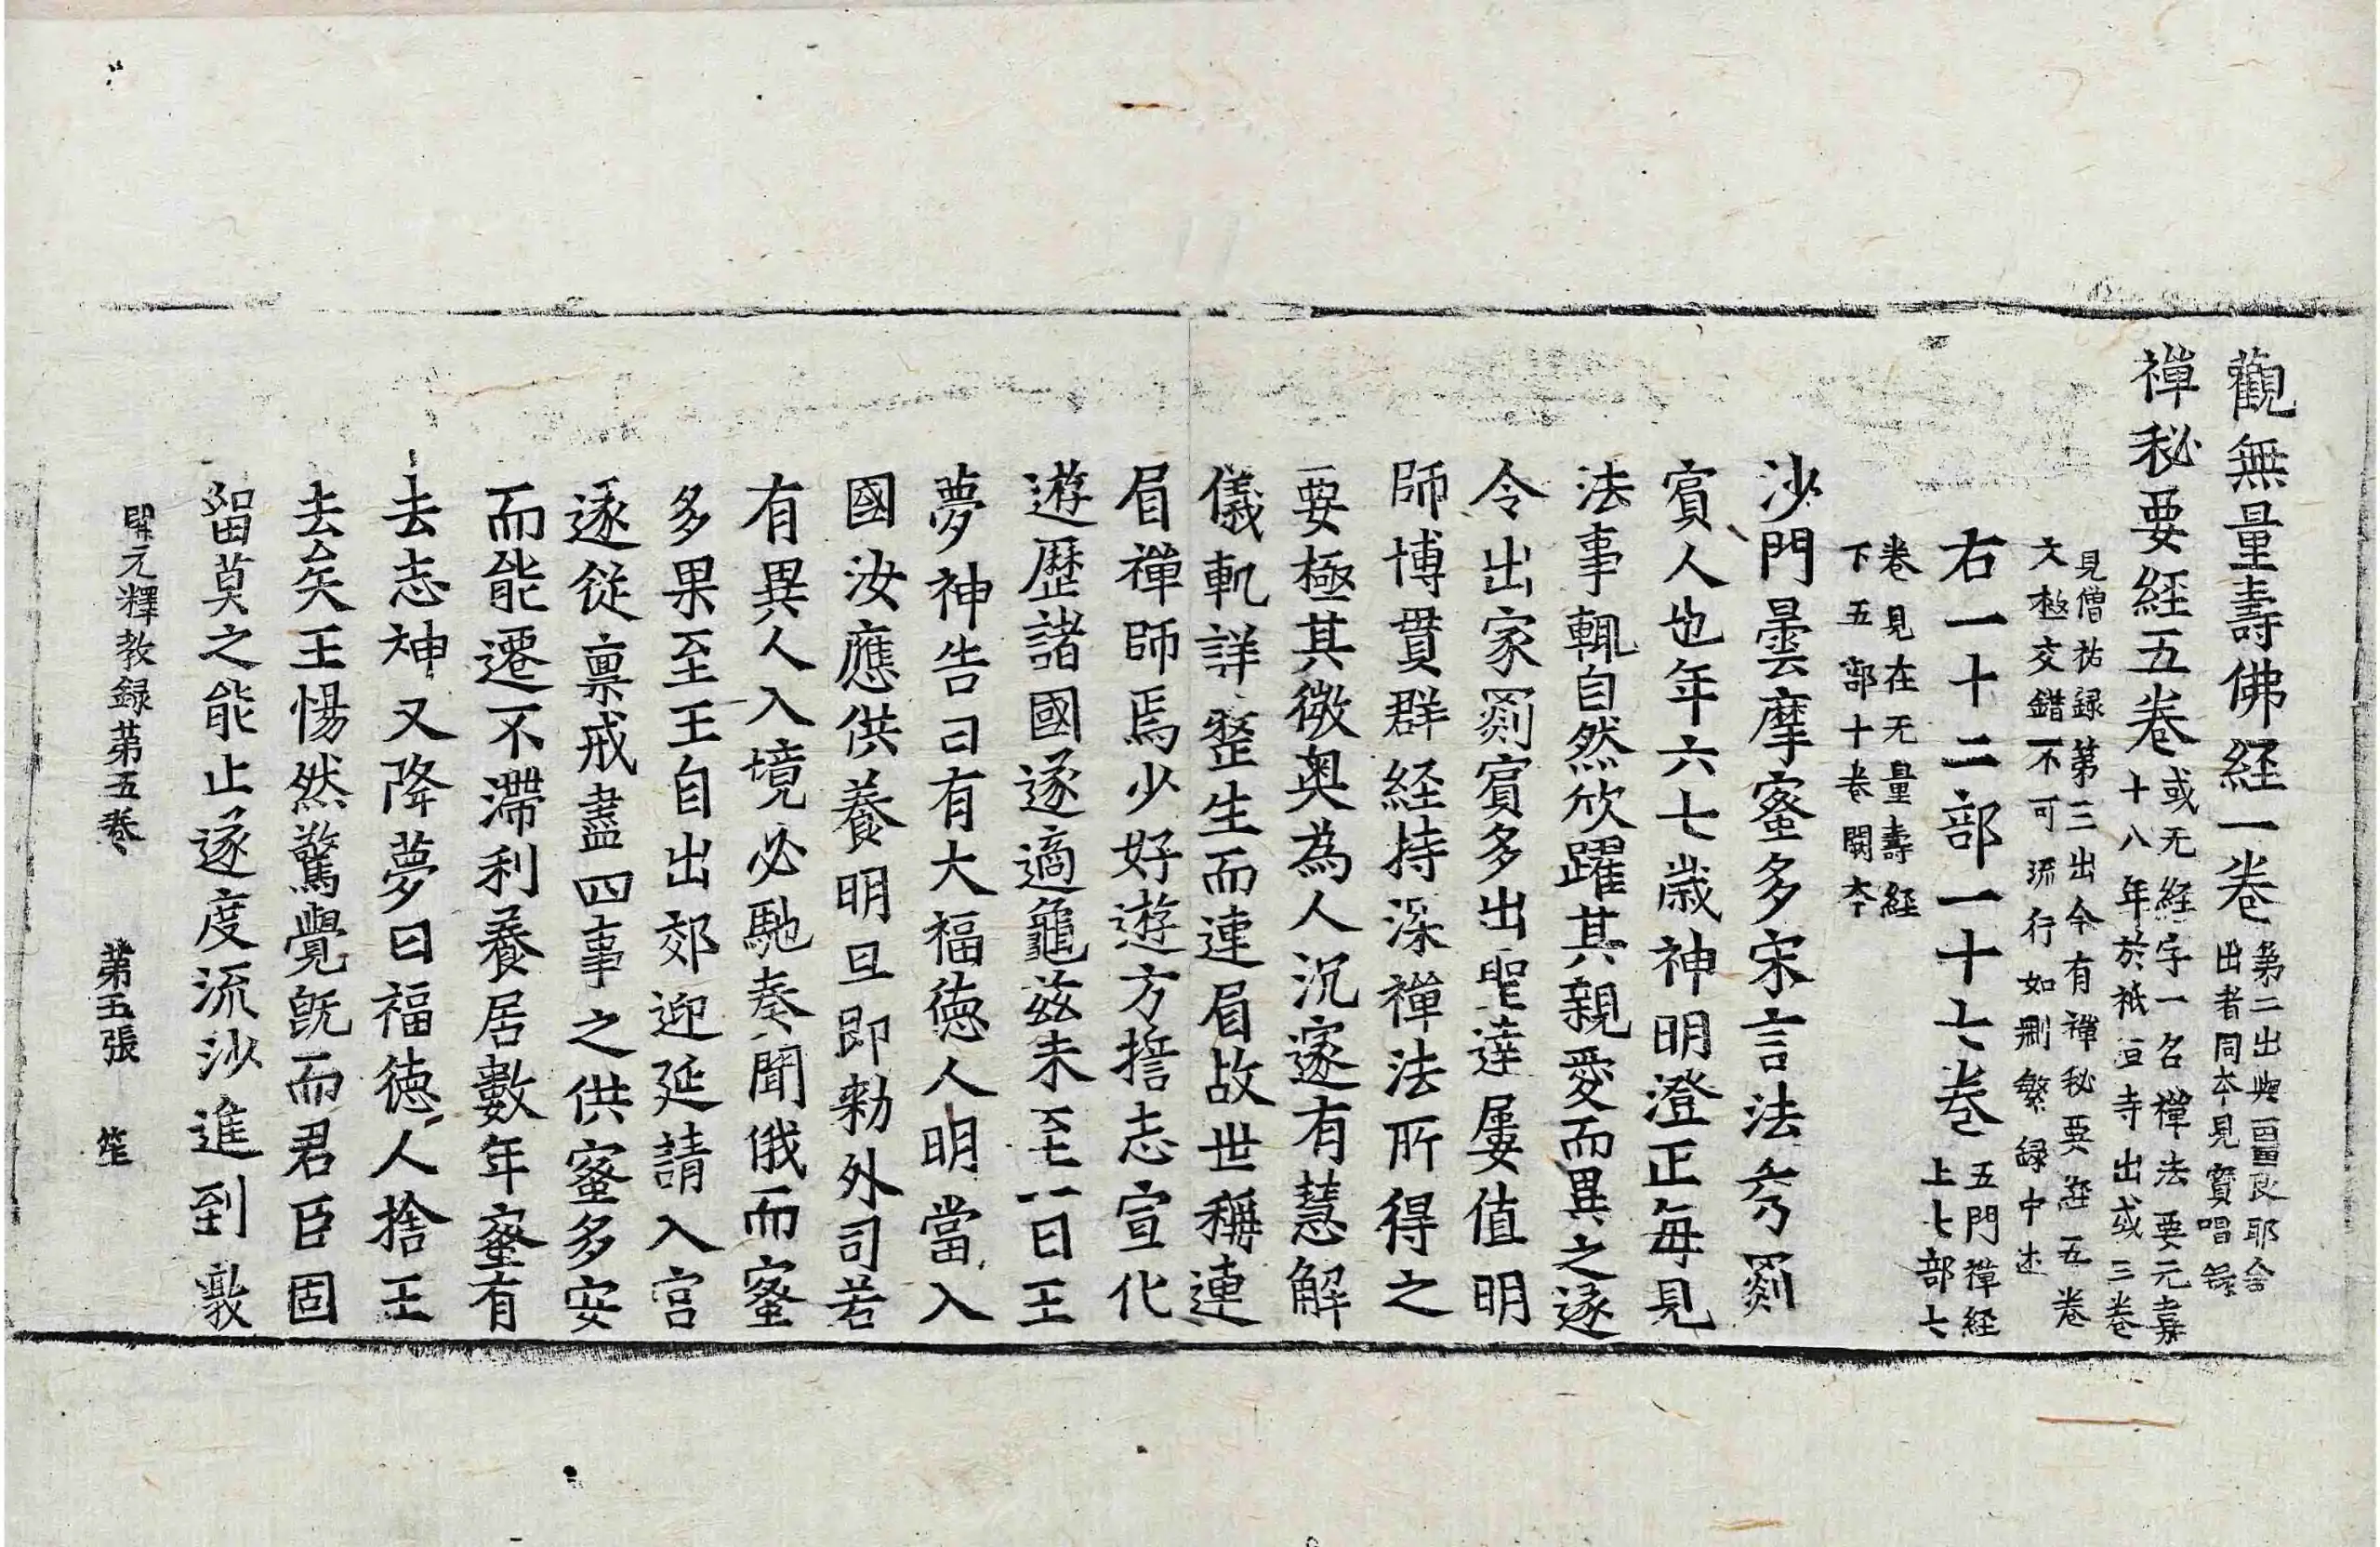 觀無量壽佛経一巻第二出與畺良耶舍
出者同本見寶唱録
禅秘要経五巻或无経字一名禅法要元嘉
十八年於祇洹寺出或三巻
見僧祐録第三出今有禅秘要経五巻
文極交錯不可流行如刪繁録中述
右一十二部一十七巻五門禅経
上七部七
巻見在无量壽経
下五部十巻闕本
沙門曇摩蜜多宋言法秀罽
賓人也年六七歲神明澄正每見
法事輒自然欣躍其親愛而異之遂
令出家罽賓多出聖達屢值明
師博貫群経持深禅法所得之
要極其微奥為人沉邃有慧解
儀軌詳整生而連眉故世稱連
眉禅師焉少好遊方誓志宣化
遊歷諸國遂適龜茲未至一日王
夢神告曰有大福徳人明當入
國汝應供養明旦即勑外司若
有異人入境必馳奏聞俄而蜜
多果至王自出郊迎延請入宮
遂從稟戒盡四事之供蜜多安
而能遷不滯利養居數年蜜有
去志神又降夢曰福徳人捨王
去矣王惕然驚覺旣而君臣固
留莫之能止遂度流沙進到敦
開元釋教録第五巻　第五張　笙